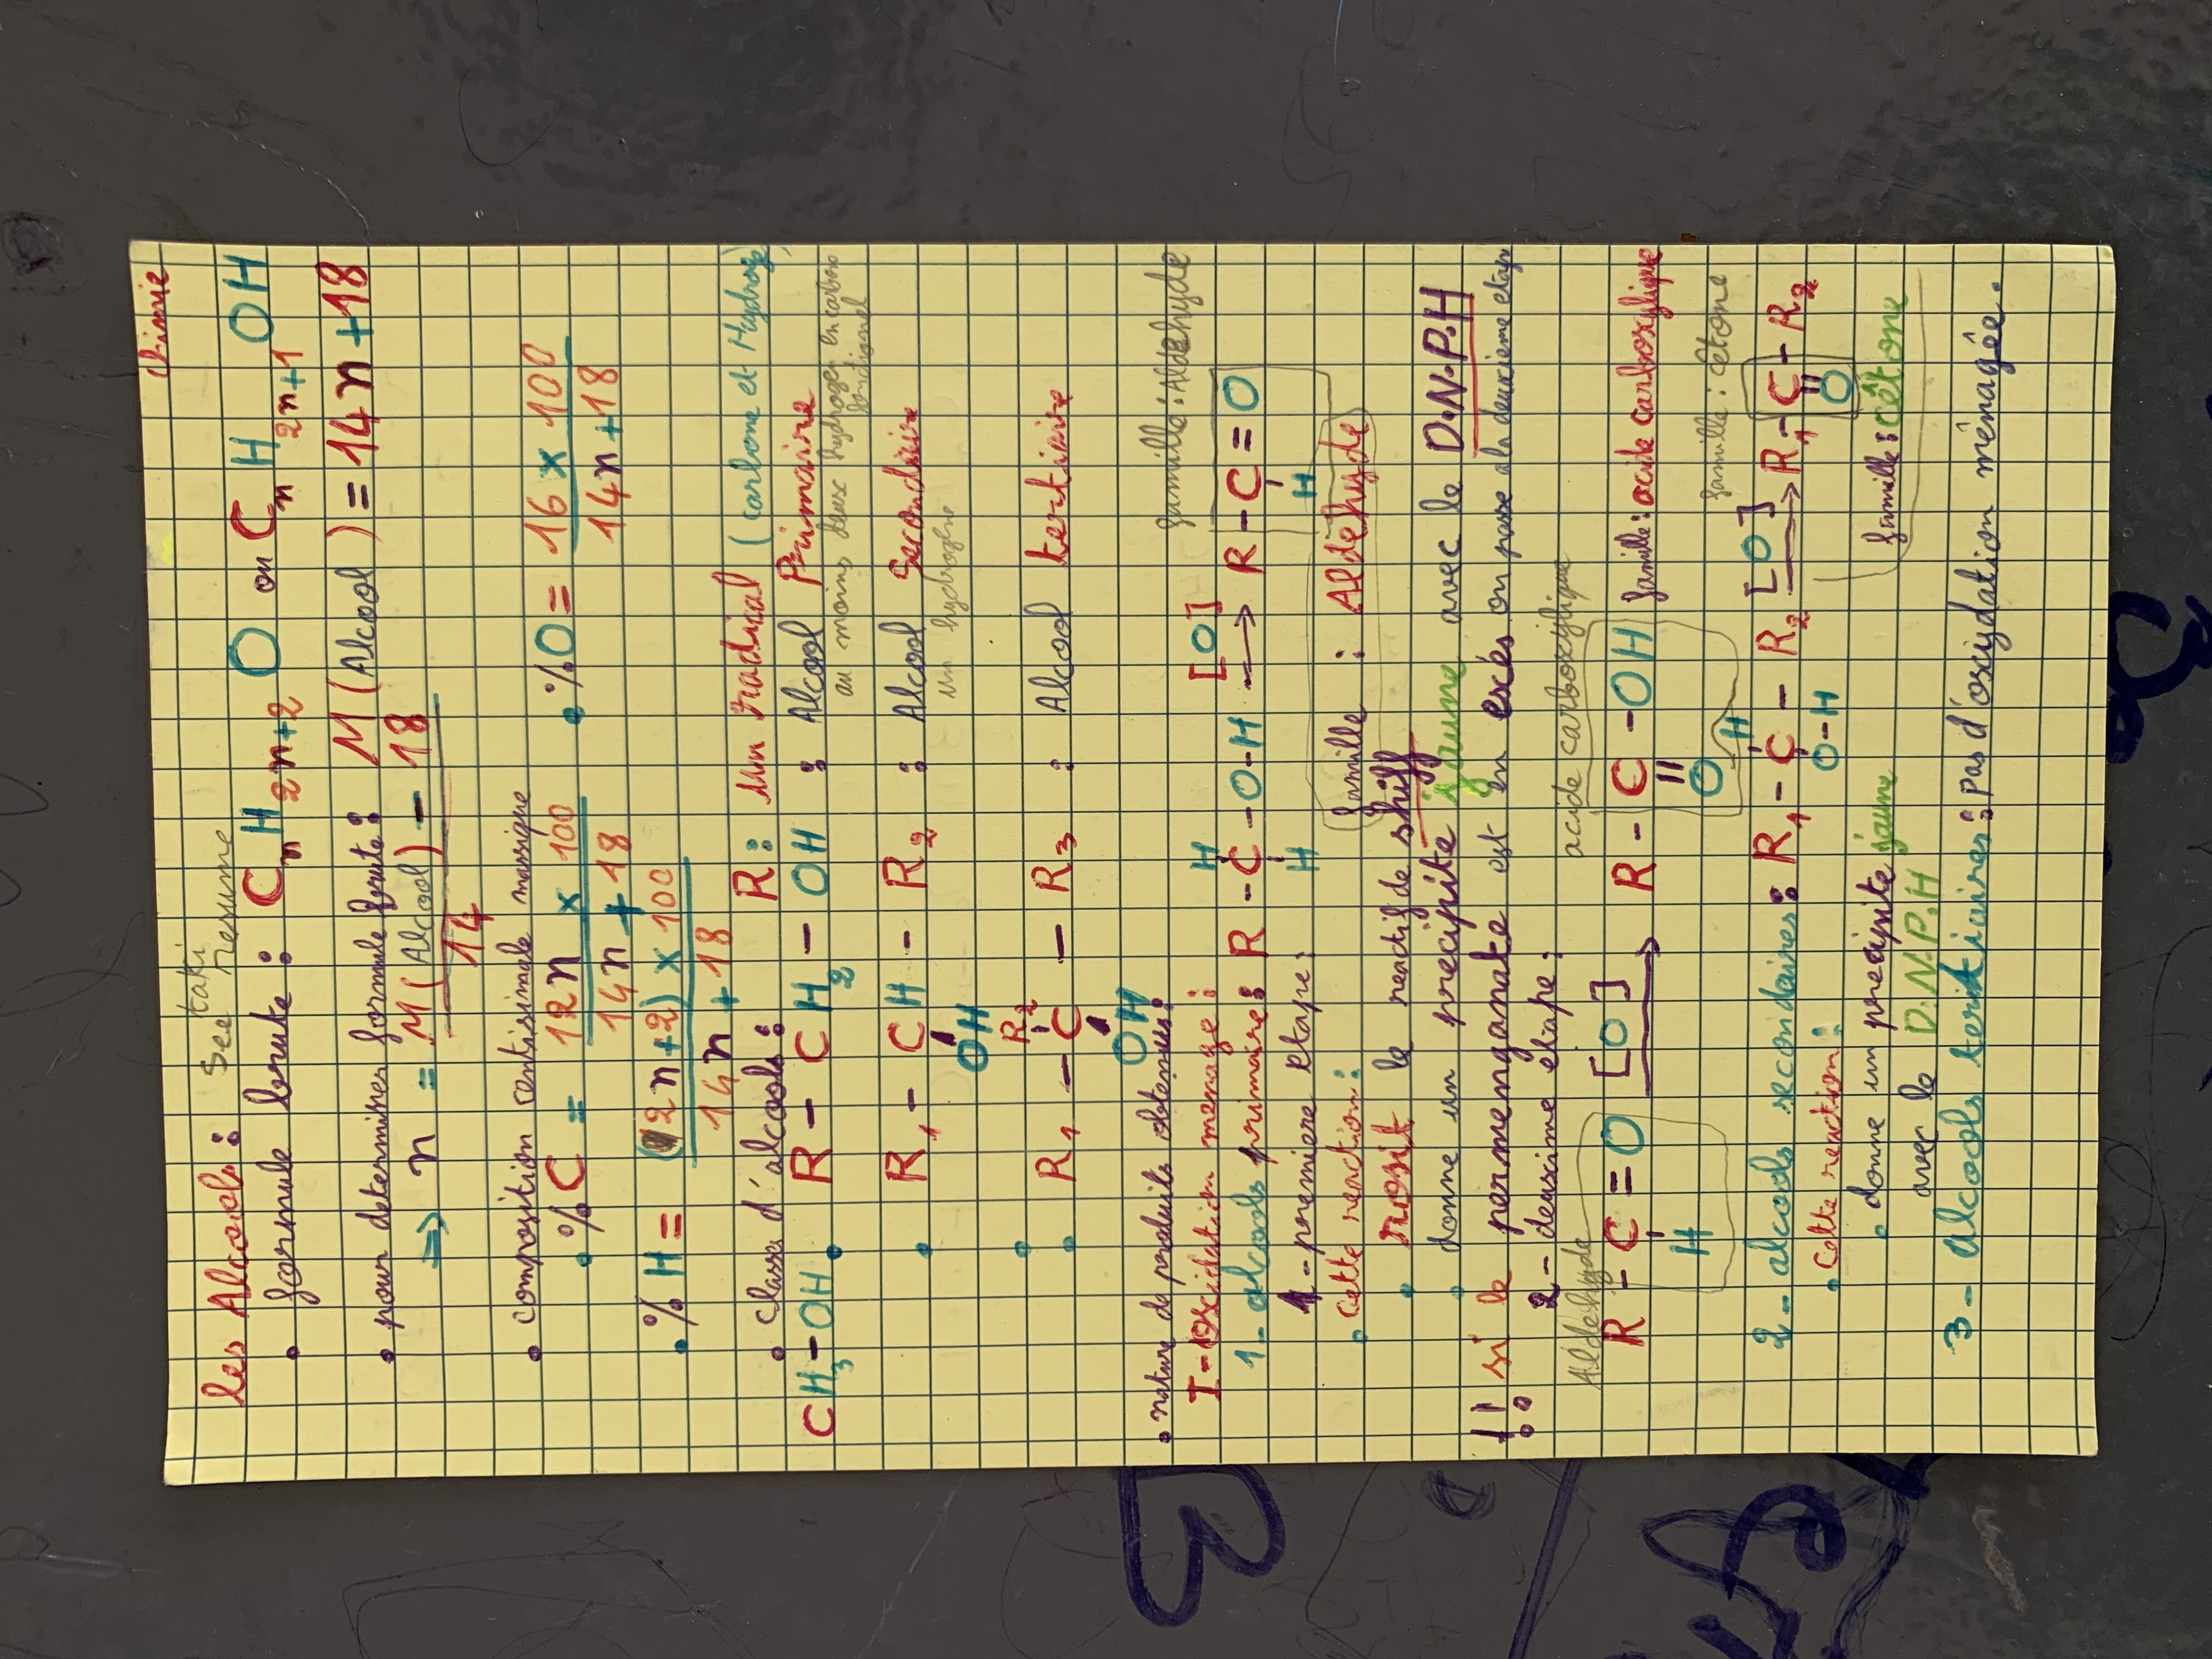 Chimie
les Alcools : See taki resume
• formule brute : CnH2n+2 O ou CnH2n+1 OH
• pour determiner formule brute : M (Alcool) = 14n+18
⇒ n = M(Alcool) - 18 / 14
• composition centisimale massique
• % C = 12n x 100 / 14n + 18 • % O = 16 x 100 / 14n+18
• % H = (2n+2) x 100 / 14n + 18
• classes d'alcools : R : Un radical (carbone et Hydroge
CH3-OH • R - CH2 - OH : Alcool Primaire
au moins deux hydrogen en carbone
fonctionel
• R1 - CH - R2 : Alcool Secondaire
un hydrogène
OH
R2
• R1 - C - R3 : Alcool tertiaire
OH
• nature de produits obtenus :
famille : Aldehyde
I - Oxidation menage :
H
1 - alcools primaire : R - C - O - H [O] → R - C = O
H H
1 - premiere etape :
• Cette reaction : famille : Aldehyde
• rosit le reactif de shiff
• donne un precipité jaune avec le D.N.P.H
!! si le permenganate est en excés on passe a la deuxieme etape
2 - deuxime etape :
Aldehyde acide carboxylique
R - C = O [O] → R - C - OH famille : acide carboxylique
H O
famille : cetone
H
2 - alcools secondaires : R1 - C - R2 [O] → R1 - C - R2
O-H O
• Cette reaction :
• donne un precipite jaune famille : cêtone
avec le D.N.P.H
3 - Alcools tertiaires : pas d'oxydation mênagêe.